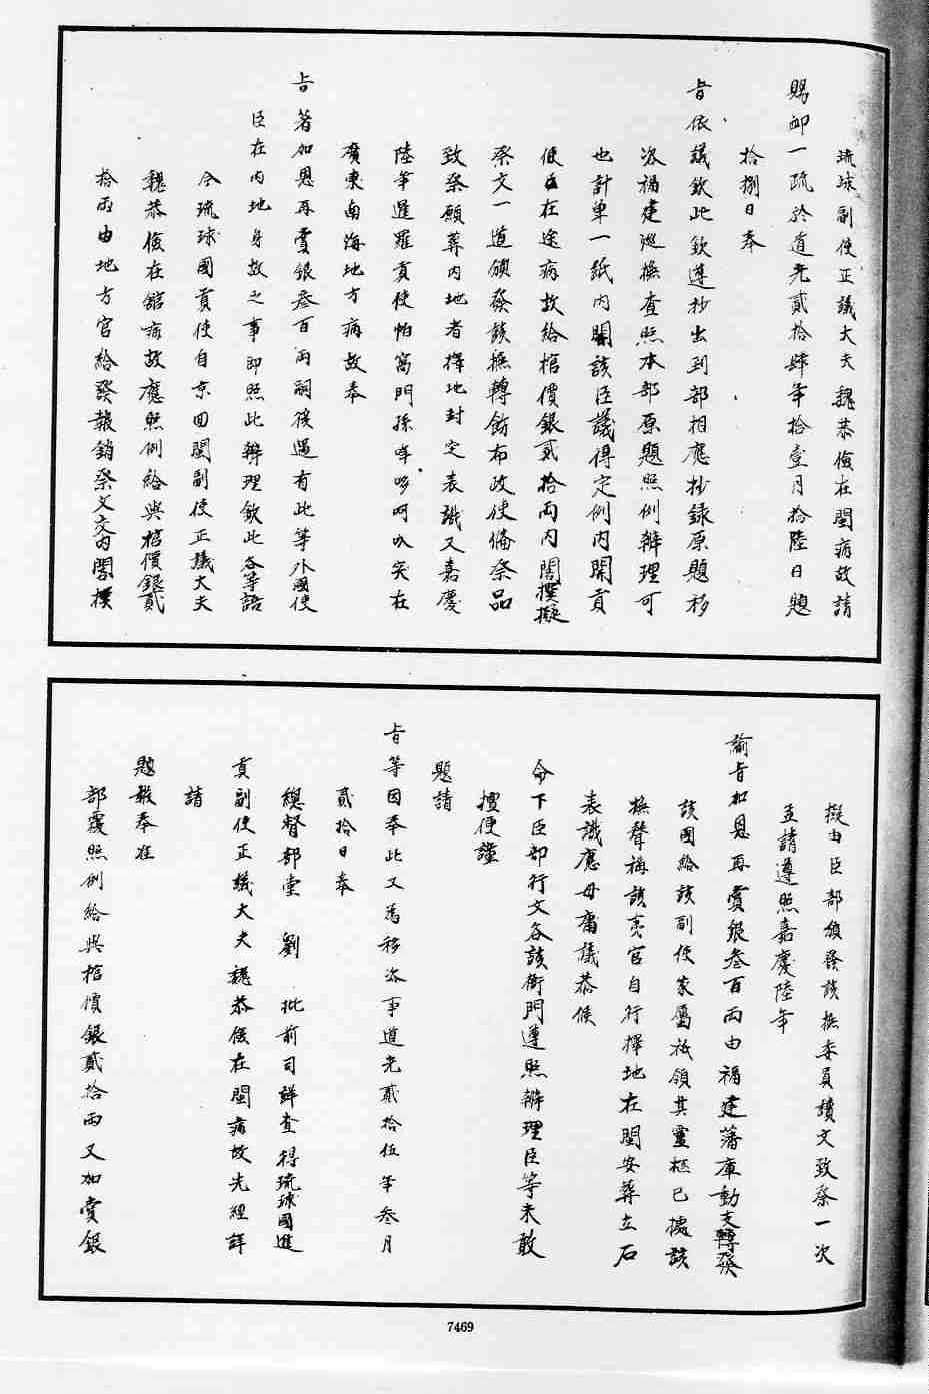 琉球副使正議大夫魏恭儉在閩病故請
賜卹一疏於道光貳拾肆年拾壹月拾陸日題
拾捌日奉
旨依議欽此欽遵抄出到部相應抄錄原題移
咨福建巡撫查照本部原題照例辦理可
也計單一紙內開該臣議得定例內開貢
使在途病故給棺價銀貳拾兩內閣撰擬
祭文一道頒發該撫轉飭布政使備祭品
致祭願葬內地者擇地封定表識又嘉慶
陸年暹羅貢使帕窩們孫哖哆呵叭突在
廣東南海地方病故奉
旨著加恩再賞銀叁百兩嗣後遇有此等外國使
臣在內地身故之事即照此辦理欽此各等語
今琉球國貢使自京回閩副使正議大夫
魏恭儉在館病故應照例給與棺價銀貳
拾兩由地方官給發報銷祭文交內閣撰
擬由臣部頒發該撫委員讀文致祭一次
並請遵照嘉慶陸年
諭旨加恩再賞銀叁百兩由福建藩庫動支轉發
該國給該副使家屬祗領其靈柩已據該
撫聲稱該夷官自行擇地在閩安葬立石
表識應毋庸議恭候
命下臣部行文各該衙門遵照辦理臣等未敢
擅便謹
題請
旨等因奉此又為移咨事道光貳拾伍年叁月
貳拾日奉
總督部堂 劉 批前司詳查得琉球國進
貢副使正議大夫魏恭儉在閩病故先經詳
請
題報奉准
部覆照例給與棺價銀貳拾兩又加賞銀
7469